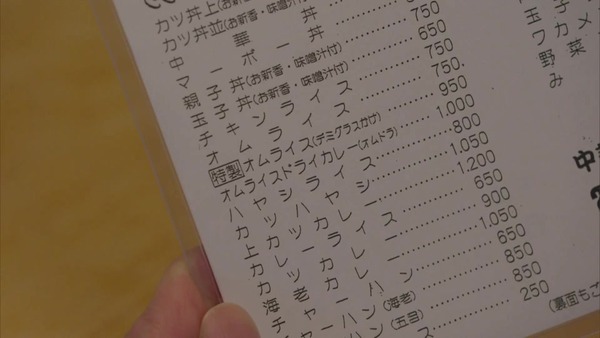 カツ丼上(お新香・味噌
カツ丼並(お新香・味噌汁
中華丼
マーボー丼
親子丼(お新香・味噌汁付) 750
玉子丼(お新香・味噌汁付) 650
チキンライス 750
オムライス 750
特製オムライス(デミグラスかけ) 950
オムライスドライカレー(オムドラ) 1,000
ハヤシライス 800
カツハヤシ 1,050
上カツカレー 1,200
カレーライス 650
カツカレー 900
海老カレー 1,050
チャーハン 650
チャーハン(海老) 850
ハン(五目) 850
ス 250
玉子
ワカメ
野菜
み
中
(裏面もご